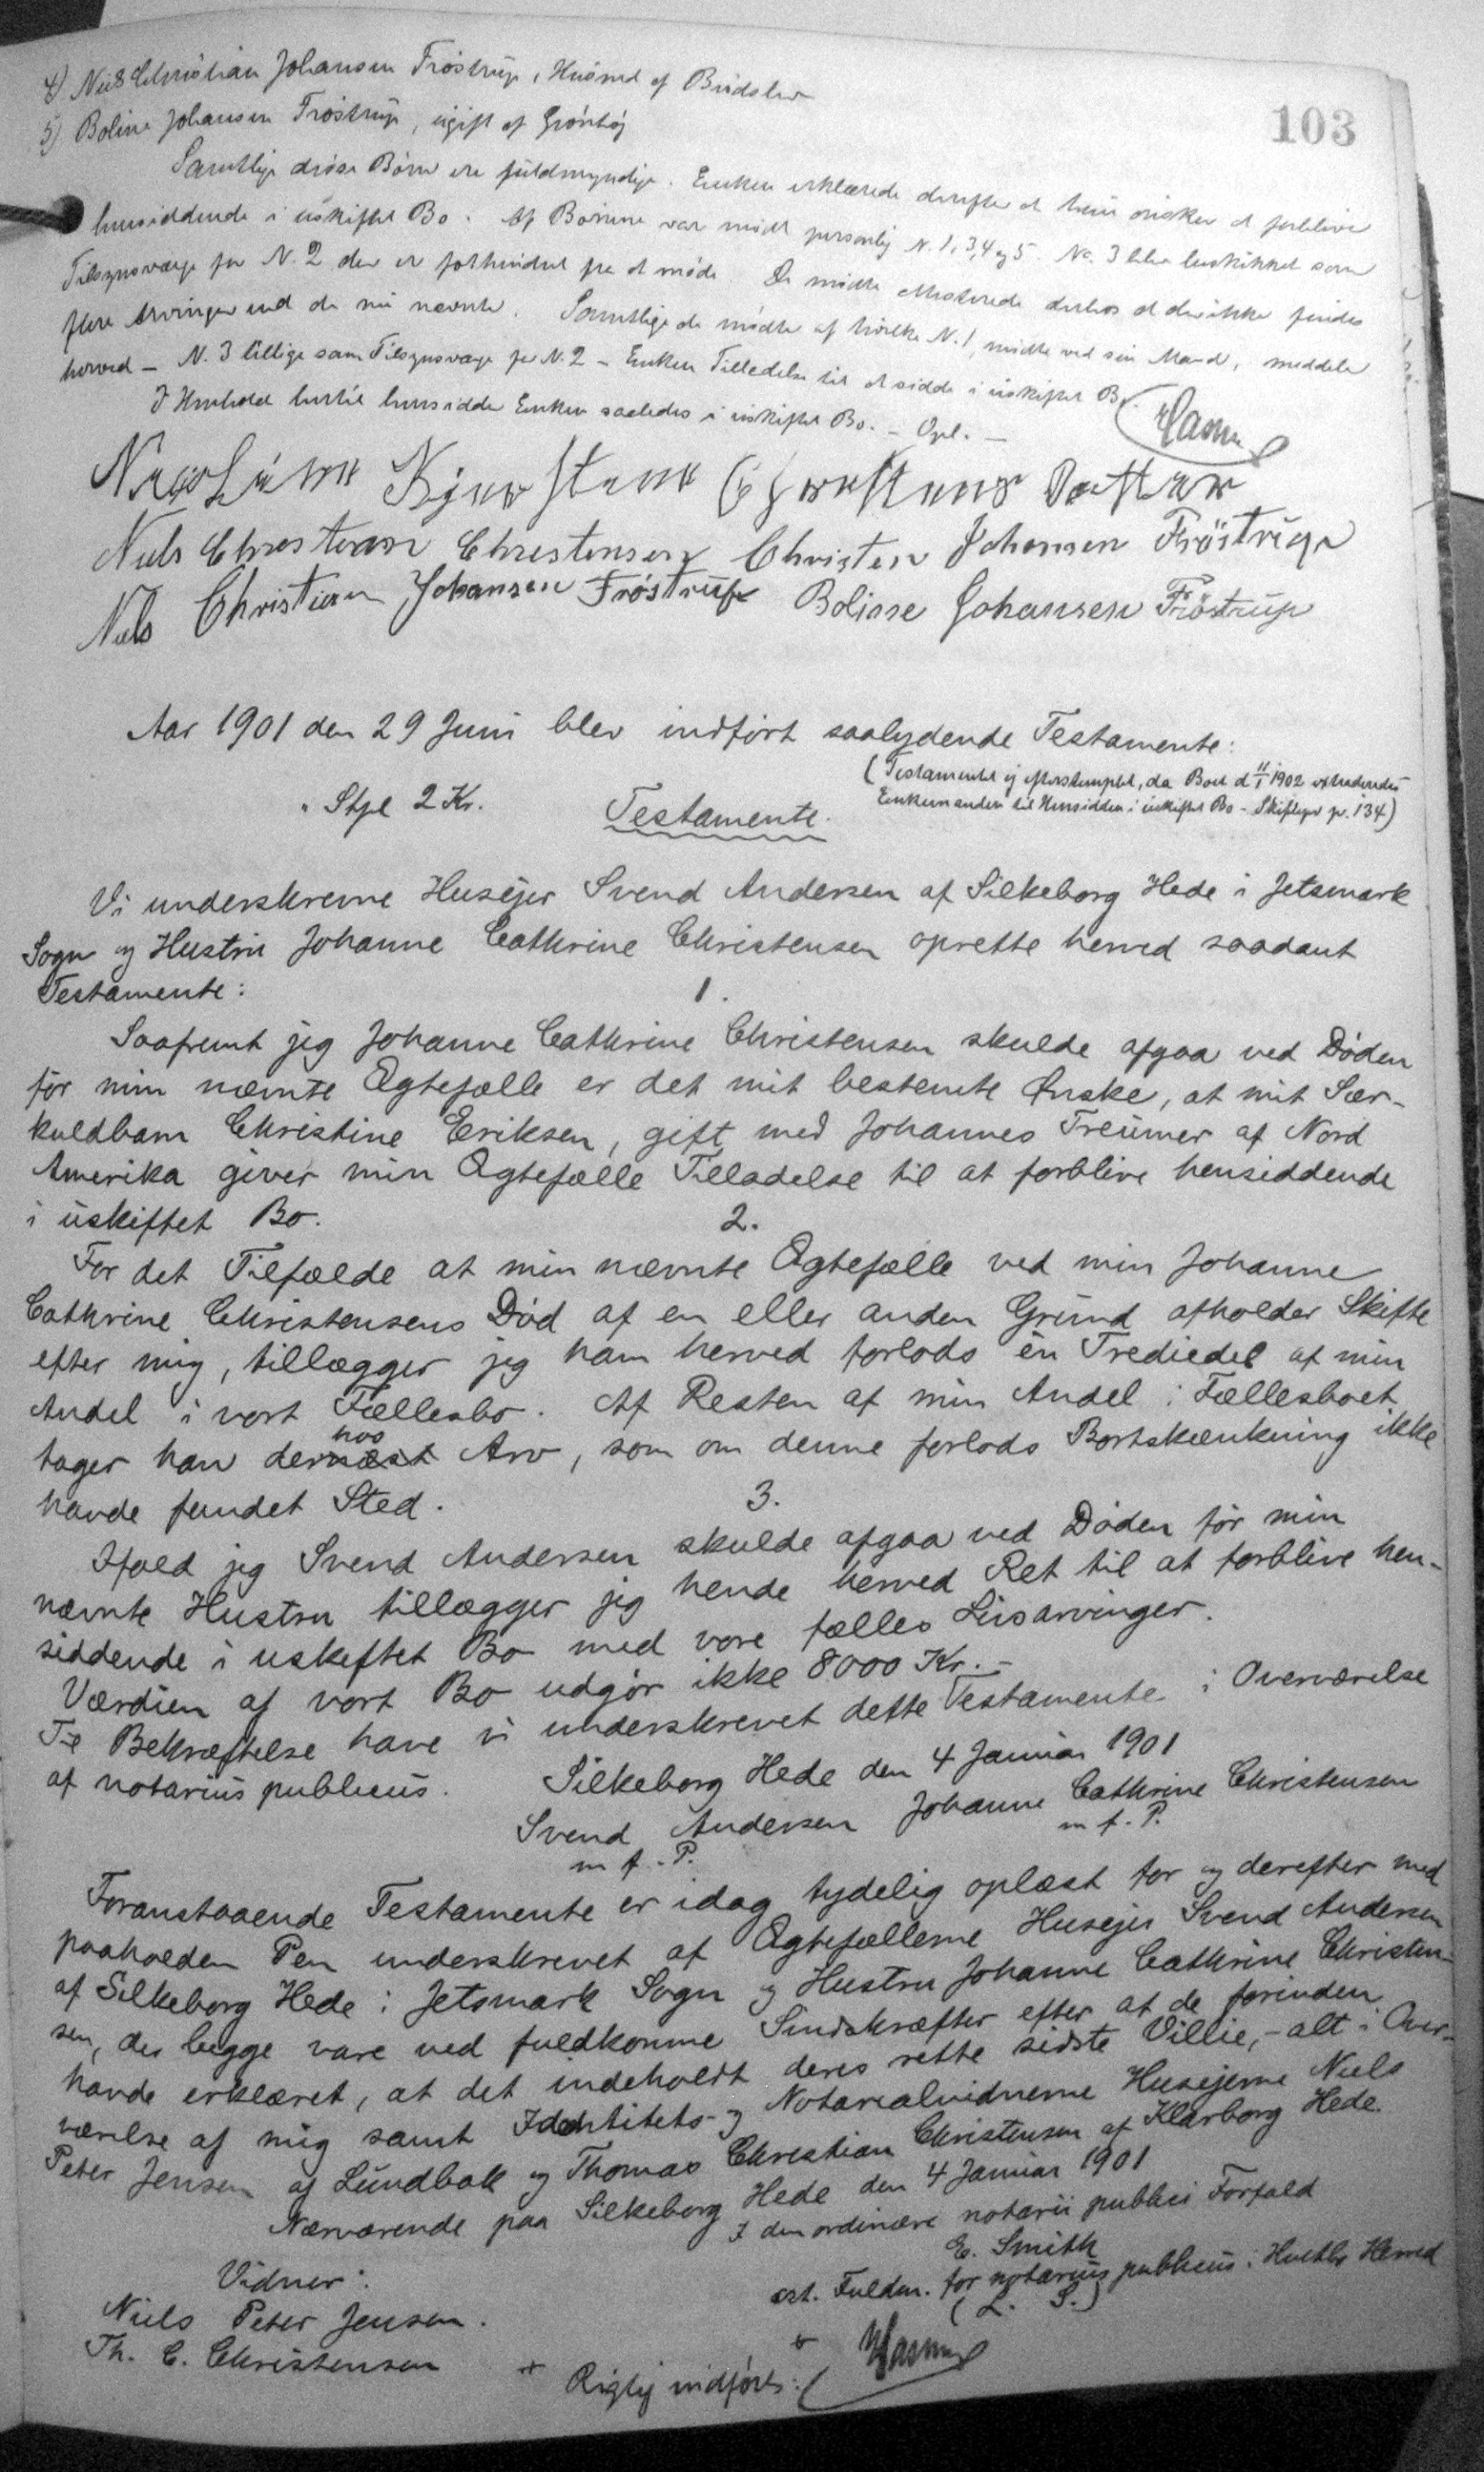 103
4) Niels Christian Johansen Fröstrup, Husmd af Brødslev
5) Boline Johansen Fröstrup, ugift af Grönhøj
Samtlige disse Börn ere fuldmyndige. Enken erklærede derefter at hun ønsker at forblive
hensiddende i uskiftet Bo. Af Börnene var mødt personlig N. 1, 3, 4 og 5. No. 3 blev beskikket som
Tilsynsværge for N. 2 der er forhindret fra at møde. De mødte attesterede derhos at der ikke findes
flere Arvinger end de nu nævnte. Samtlige de mødte af hvilke N. 1, mødte ved sin Mand, meddele
herved - N. 3 tillige som Tilsynsværge for N. 2 - Enken Tilladelse til at sidde i uskiftet Bo.
I Henhold hertil hensidder Enken saaledes i uskiftet Bo. - Opl. -
Niels Christian Christensen Christen Johansen Fröstrup
Niels Christian Johansen Fröstrup Boline Johansen Fröstrup
Aar 1901 den 29 Juni blev indført saalydende Testamente:
(Testamentet ej efterstemplet, da Boet d 11/1 1902 extraderedes
Enkemanden til Hensidden i uskiftet Bo - Skiftepr p. 134)
" Stpl 2 Kr.
Testamente.
Vi underskrevne Husejer Svend Andersen af Silkeborg Hede i Jetsmark
Sogn og Hustru Johanne Cathrine Christensen oprette herved saadant
Testamente:
1.
Saafremt jeg Johanne Cathrine Christensen skulde afgaa ved Døden
før min nævnte Ægtefælle er det mit bestemte Ønske, at mit Sær-
kuldbarn Christine Eriksen, gift med Johannes Treümer af Nord
Amerika giver min Ægtefælle Tilladelse til at forblive hensiddende
i uskiftet Bo.
2.
For det Tilfælde at min nævnte Ægtefælle ved min Johanne
Cathrine Christensens Død af en eller anden Grund afholder Skifte
efter mig, tillægger jeg ham herved forlods en Trediedel af min
Andel i vort Fællesbo. Af Resten af min Andel i Fællesboet
hos
tager han dernæst Arv, som om denne forlods Bortskænkning ikke
havde fundet Sted.
3.
Ifald jeg Svend Andersen skulde afgaa ved Døden før min
nævnte Hustru tillægger jeg hende herved Ret til at forblive hen-
siddende i uskiftet Bo med vore fælles Livsarvinger.
Værdien af vort Bo udgør ikke 8000 Kr. -
Til Bekræftelse have vi underskrevet dette Testamente i Overværelse
af notarius publicus.
Silkeborg Hede den 4 Januar 1901
Svend Andersen Johanne Cathrine Christensen
m f. P. m f. P.
Foranstaaende Testamente er idag tydelig oplæst for og derefter med
paaholden Pen underskrevet af Ægtefællerne Husejer Svend Andersen
af Silkeborg Hede i Jetsmark Sogn og Hustru Johanne Cathrine Christen-
sen, der begge vare ved fuldkomne Sindskræfter efter at de forinden
havde erklæret, at det indeholdt deres rette sidste Villie, - alt i Over-
værelse af mig samt Identitets- og Notarialvidnerne Husejerne Niels
Peter Jensen af Lundbak og Thomas Christian Christensen af Klarborg Hede.
Nærværende paa Silkeborg Hede den 4 Januar 1901
I den ordinære notarii publici Forfald
E. Smith
cst. Fuldm. for notarius publicus i Hvetbo Herred
(L. S.)
Vidner:
Niels Peter Jensen.
Th. C. Christensen
Rigtig indført: